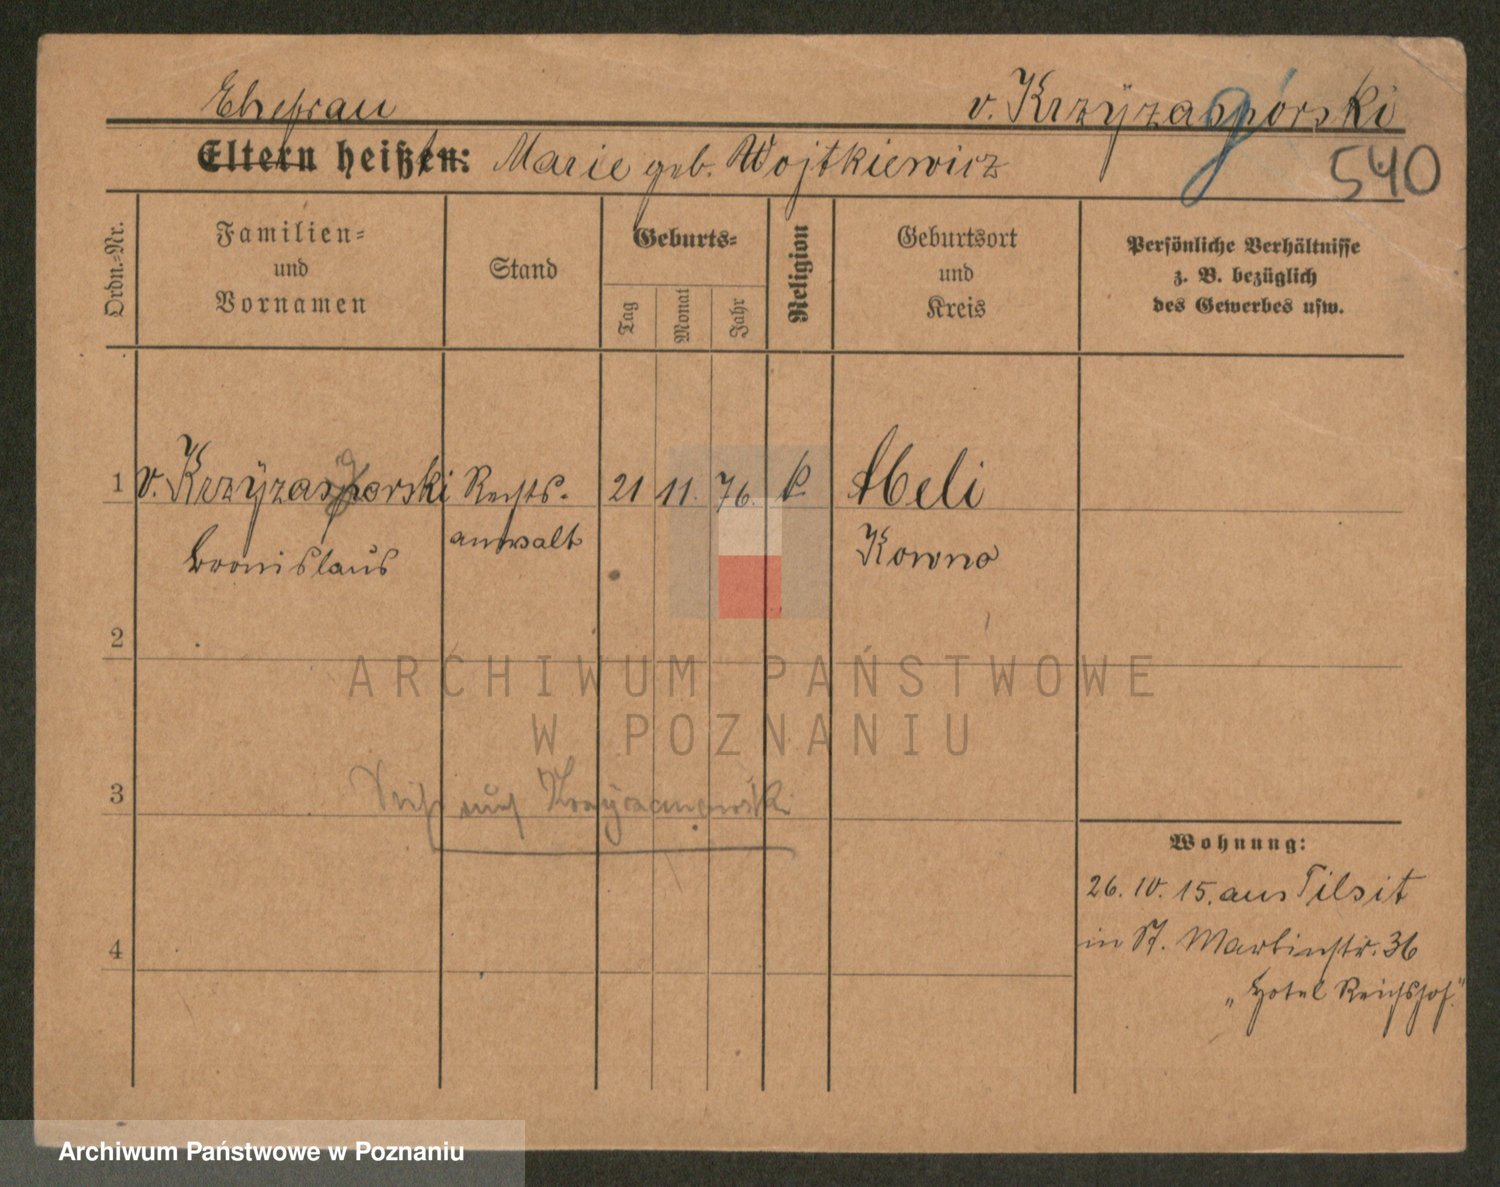 Ehefrau v. Krzÿzaspórski
g
Eltern heißen: Marie geb. Wojtkiewicz 540
Ordn.-Nr.
Familien-
und
Vornamen
Stand
Geburts-
Tag
Monat
Jahr
Religion
Geburtsort
und
Kreis
Persönliche Verhältnisse
z. B. bezüglich
des Gewerbes usw.
1 v. Krzÿzasporski Rechts- 21 11. 76. k.
Bronislaus anwalt Kowno
2
ARCHIWUM PAŃSTWOWE
W POZNANIU
3 Sieh auch
Wohnung:
26. 10. 15. aus Tilsit
in St. Martinstr. 36
4
„Hotel Reichshof."
Archiwum Państwowe w Poznaniu